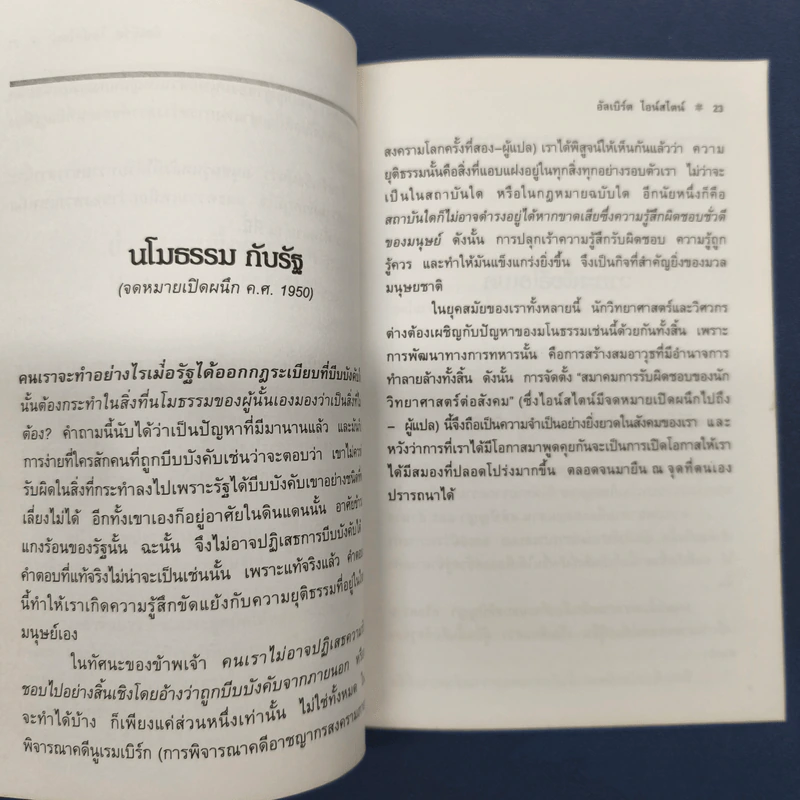 นโมธรรม กับรัฐ
(จดหมายเปิดผนึก ค.ศ. 1950)
คนเราจะทำอย่างไรเมื่อรัฐได้ออกกฎระเบียบที่บีบบังคับ
นั้นต้องกระทำในสิ่งที่นโมธรรมของผู้นั้นเองมองว่าเป็นสิ่งที่
ต้อง? คำถามนี้นับได้ว่าเป็นปัญหาที่มีมานานแล้ว และมัน
การง่ายที่ใครสักคนที่ถูกบีบบังคับเช่นว่าจะตอบว่า เขาไม่ควร
รับผิดในสิ่งที่กระทำลงไปเพราะรัฐได้บีบบังคับเขาอย่างชนิดที่
เลี่ยงไม่ได้ อีกทั้งเขาเองก็อยู่อาศัยในดินแดนนั้น อาศัยข้าว
แกงร้อนของรัฐนั้น ฉะนั้น จึงไม่อาจปฏิเสธการบีบบังคับได้
คำตอบที่แท้จริงไม่น่าจะเป็นเช่นนั้น เพราะแท้จริงแล้ว คำตอบ
นี้ทำให้เราเกิดความรู้สึกขัดแย้งกับความยุติธรรมที่อยู่ใน
มนุษย์เอง
ในทัศนะของข้าพเจ้า คนเราไม่อาจปฏิเสธความ
ชอบไปอย่างสิ้นเชิงโดยอ้างว่าถูกบีบบังคับจากภายนอก
จะทำได้บ้าง ก็เพียงแค่ส่วนหนึ่งเท่านั้น ไม่ใช่ทั้งหมด
พิจารณาคดีนูเรมเบิร์ก (การพิจารณาคดีอาชญากรสงคราม
อัลเบิร์ต ไอน์สไตน์ * 23
สงครามโลกครั้งที่สอง–ผู้แปล) เราได้พิสูจน์ให้เห็นกันแล้วว่า ความ
ยุติธรรมนั้นคือสิ่งที่แอบแฝงอยู่ในทุกสิ่งทุกอย่างรอบตัวเรา ไม่ว่าจะ
เป็นในสถาบันใด หรือในกฎหมายฉบับใด อีกนัยหนึ่งก็คือ
สถาบันใดก็ไม่อาจดำรงอยู่ได้หากขาดเสียซึ่งความรู้สึกผิดชอบชั่วดี
ของมนุษย์ ดังนั้น การปลุกเร้าความรู้สึกรับผิดชอบ ความรู้ถูก
รู้ควร และทำให้มันแข็งแกร่งยิ่งขึ้น จึงเป็นกิจที่สำคัญยิ่งของมวล
มนุษยชาติ
ในยุคสมัยของเราทั้งหลายนี้ นักวิทยาศาสตร์และวิศวกร
ต่างต้องเผชิญกับปัญหาของมโนธรรมเช่นนี้ด้วยกันทั้งสิ้น เพราะ
การพัฒนาทางการทหารนั้น คือการสร้างสมอาวุธที่มีอำนาจการ
ทำลายล้างทั้งสิ้น ดังนั้น การจัดตั้ง “สมาคมการรับผิดชอบของนัก
วิทยาศาสตร์ต่อสังคม” (ซึ่งไอน์สไตน์มีจดหมายเปิดผนึกไปถึง
– ผู้แปล) นี้จึงถือเป็นความจำเป็นอย่างยิ่งยวดในสังคมของเรา และ
หวังว่าการที่เราได้มีโอกาสมาพูดคุยกันจะเป็นการเปิดโอกาสให้เรา
ได้มีสมองที่ปลอดโปร่งมากขึ้น ตลอดจนมายืน ณ จุดที่ตนเอง
ปรารถนาได้